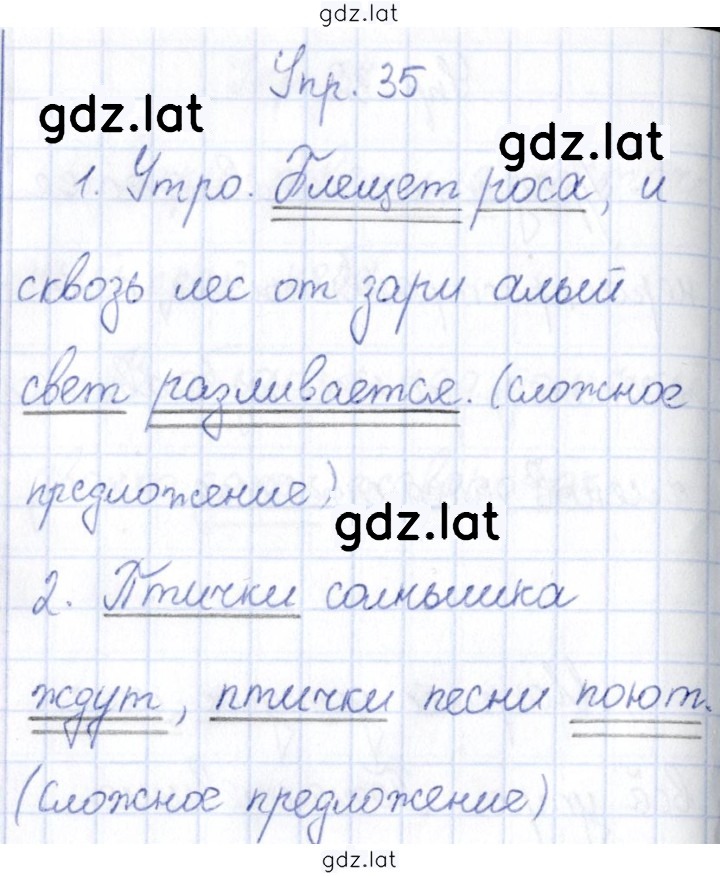 gdz.lat
Упр. 35
gdz.lat
gdz.lat
1. Утро. Блещет роса, и
сквозь лес от зари алый
свет разливается. (сложное
предложение)
gdz.lat
2. Птички солнышка
ждут, птички песни поют.
(сложное предложение)
gdz.lat